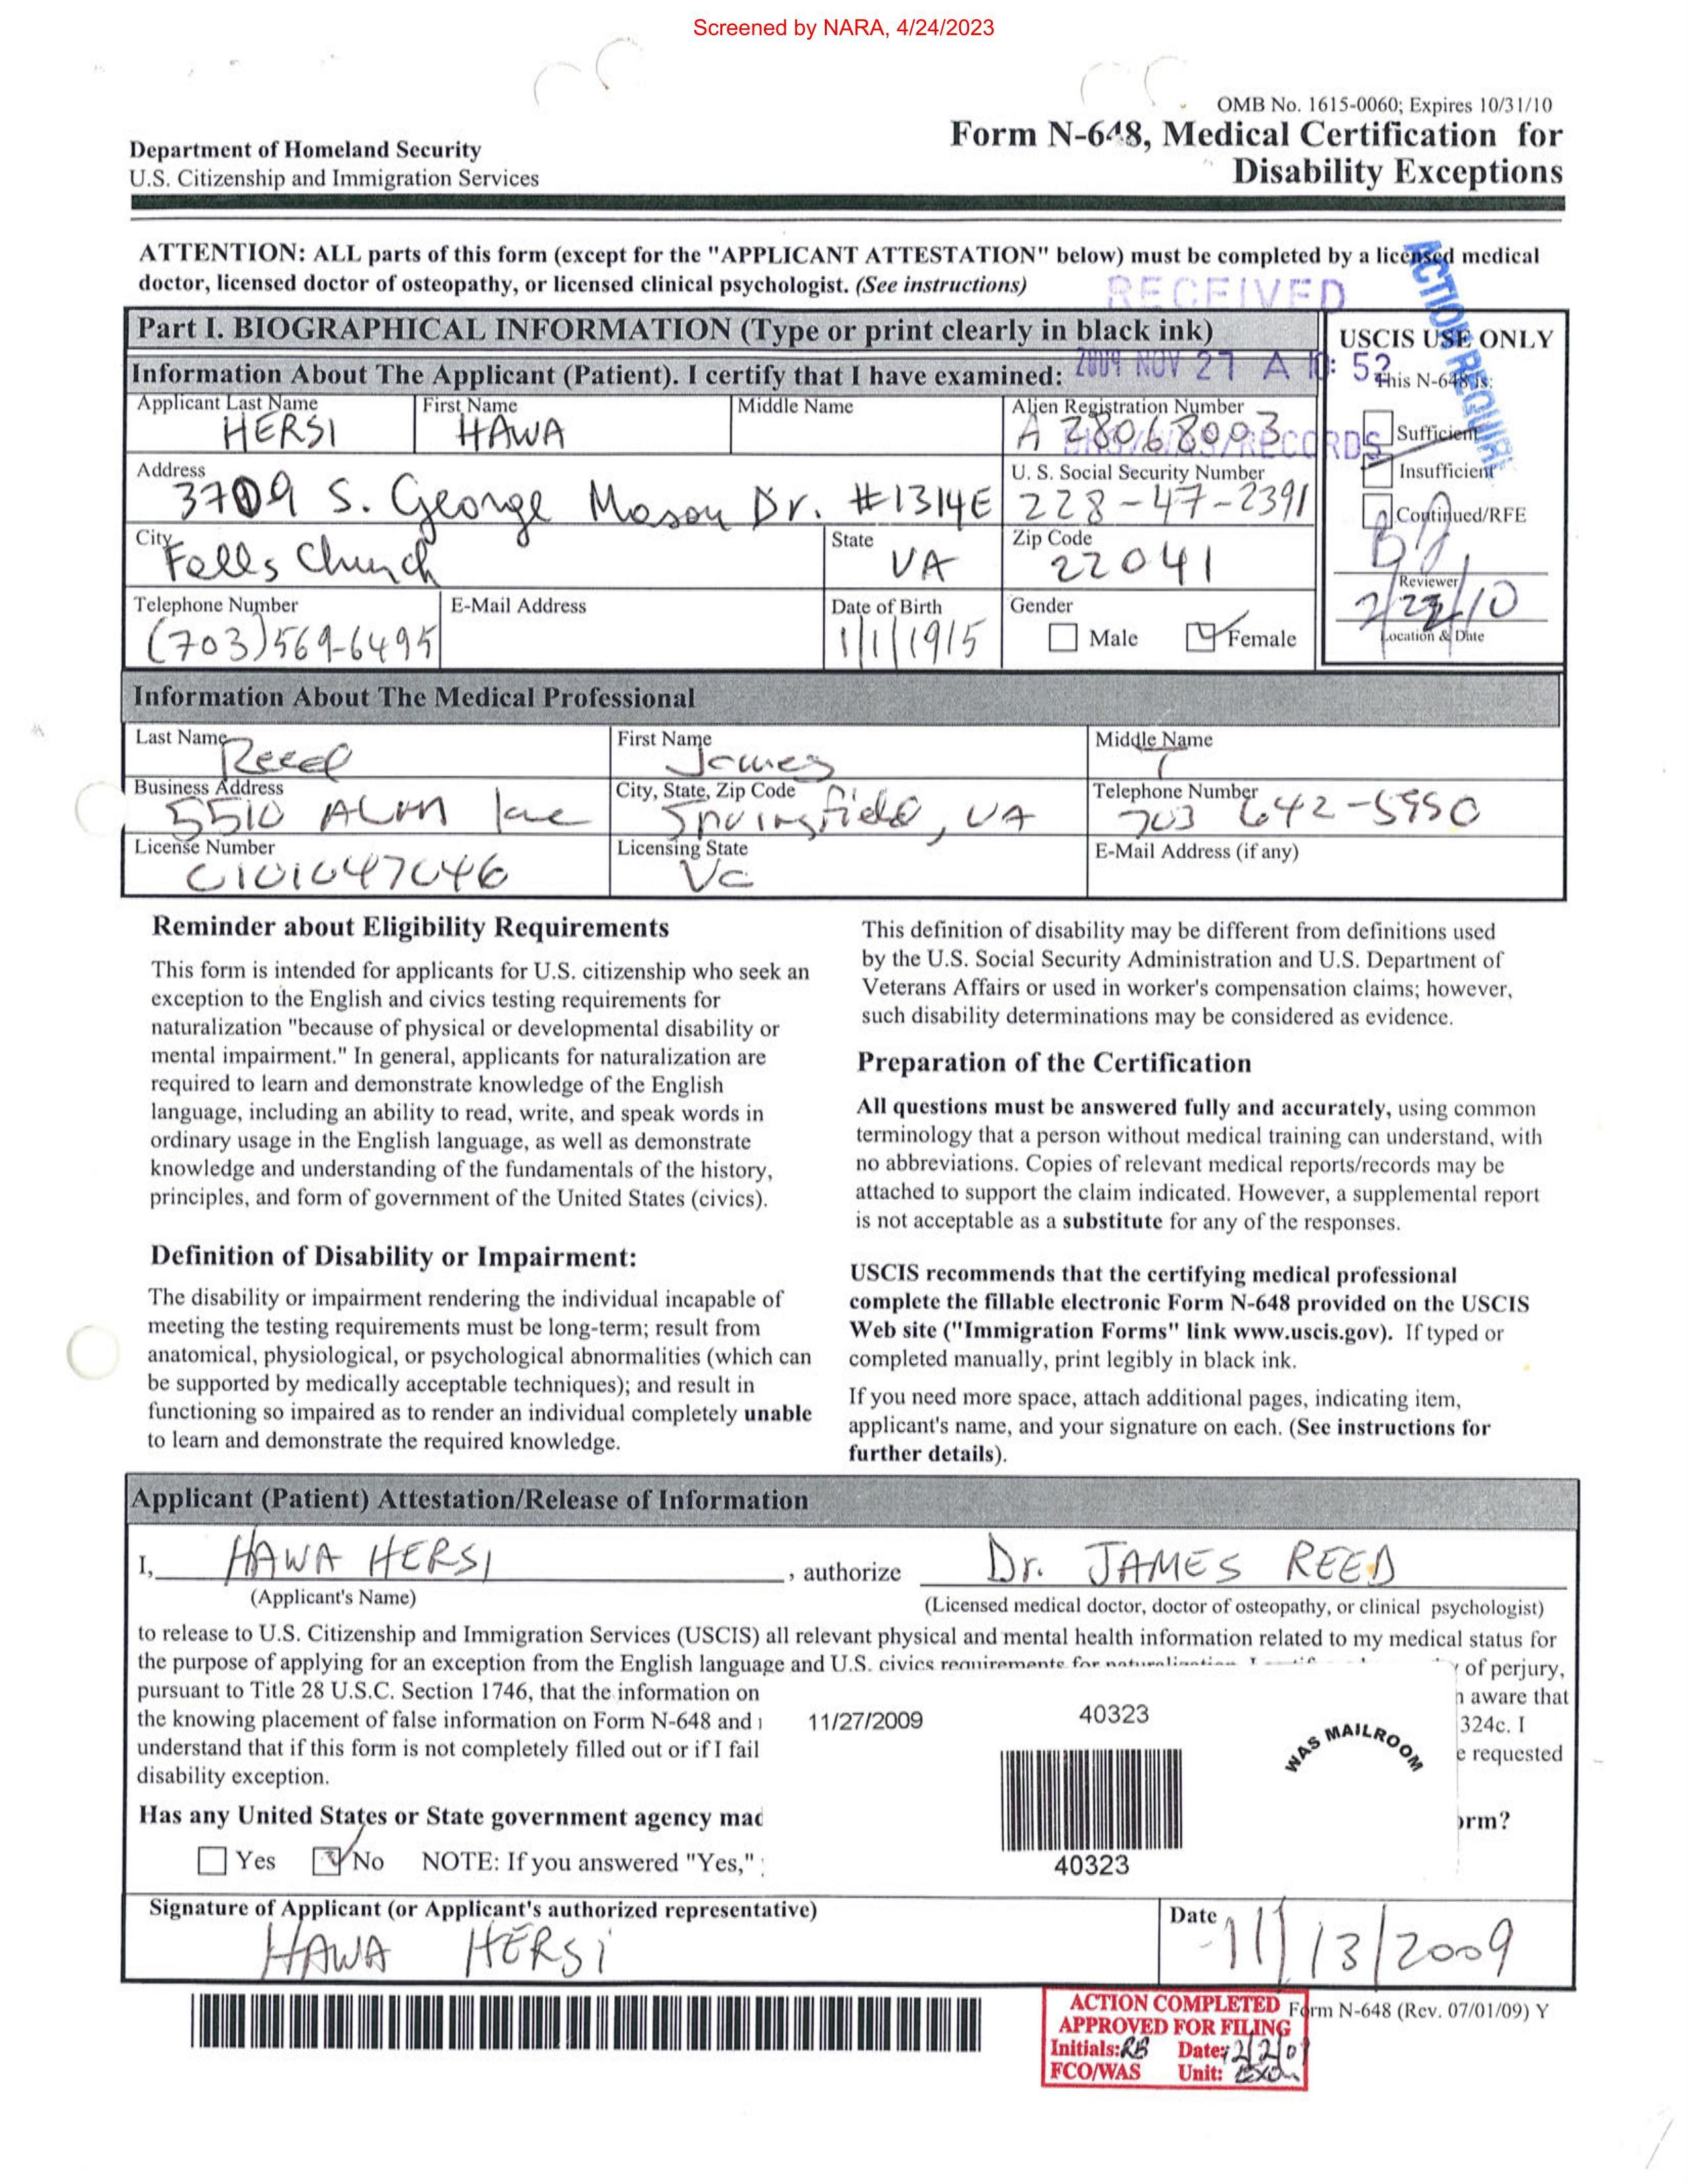 Screened by NARA, 4/24/2023
OMB No. 1615-0060; Expires 10/31/10
Department of Homeland Security
U.S. Citizenship and Immigration Services
Form N-648, Medical Certification for
Disability Exceptions
ATTENTION: ALL parts of this form (except for the "APPLICANT ATTESTATION" below) must be completed by a licensed medical
doctor, licensed doctor of osteopathy, or licensed clinical psychologist. (See instructions)
RECEIVED
2009 NOV 27 A 10: 52
RECORDS
ACTION REQUIRE
Part I. BIOGRAPHICAL INFORMATION (Type or print clearly in black ink)
Information About The Applicant (Patient). I certify that I have examined:
USCIS USE ONLY
This N-648 is:
Sufficient
Insufficient
Continued/RFE
Reviewer
2/22/10
Location & Date
Applicant Last Name First Name Middle Name Alien Registration Number
HERSI HAWA A 28068003
Address U. S. Social Security Number
3709 S. George Mason Dr. #1314E 228-47-2391
City State Zip Code
Falls Church VA 22041
Telephone Number E-Mail Address Date of Birth Gender
(703)569-6495 1/1/1915 Male Female
Information About The Medical Professional
Last Name First Name Middle Name
Reed James T
Business Address City, State, Zip Code Telephone Number
5510 Alma lane Springfield, VA 703 642-5950
License Number Licensing State E-Mail Address (if any)
0101047046 Va
Reminder about Eligibility Requirements
This form is intended for applicants for U.S. citizenship who seek an
exception to the English and civics testing requirements for
naturalization "because of physical or developmental disability or
mental impairment." In general, applicants for naturalization are
required to learn and demonstrate knowledge of the English
language, including an ability to read, write, and speak words in
ordinary usage in the English language, as well as demonstrate
knowledge and understanding of the fundamentals of the history,
principles, and form of government of the United States (civics).
Definition of Disability or Impairment:
The disability or impairment rendering the individual incapable of
meeting the testing requirements must be long-term; result from
anatomical, physiological, or psychological abnormalities (which can
be supported by medically acceptable techniques); and result in
functioning so impaired as to render an individual completely unable
to learn and demonstrate the required knowledge.
This definition of disability may be different from definitions used
by the U.S. Social Security Administration and U.S. Department of
Veterans Affairs or used in worker's compensation claims; however,
such disability determinations may be considered as evidence.
Preparation of the Certification
All questions must be answered fully and accurately, using common
terminology that a person without medical training can understand, with
no abbreviations. Copies of relevant medical reports/records may be
attached to support the claim indicated. However, a supplemental report
is not acceptable as a substitute for any of the responses.
USCIS recommends that the certifying medical professional
complete the fillable electronic Form N-648 provided on the USCIS
Web site ("Immigration Forms" link www.uscis.gov). If typed or
completed manually, print legibly in black ink.
If you need more space, attach additional pages, indicating item,
applicant's name, and your signature on each. (See instructions for
further details).
Applicant (Patient) Attestation/Release of Information
I, HAWA HERSI , authorize Dr. JAMES REED
(Applicant's Name) (Licensed medical doctor, doctor of osteopathy, or clinical psychologist)
to release to U.S. Citizenship and Immigration Services (USCIS) all relevant physical and mental health information related to my medical status for
the purpose of applying for an exception from the English language and U.S. civics requirements for naturalization. of perjury,
pursuant to Title 28 U.S.C. Section 1746, that the information on aware that
the knowing placement of false information on Form N-648 and 324c. I
understand that if this form is not completely filled out or if I fail e requested
disability exception.
11/27/2009 40323
WAS MAILROOM
40323
Has any United States or State government agency mad orm?
Yes No NOTE: If you answered "Yes,"
Signature of Applicant (or Applicant's authorized representative) Date
HAWA HERSI 11/13/2009
ACTION COMPLETED
APPROVED FOR FILING
Initials: RB Date:
FCO/WAS Unit:
Form N-648 (Rev. 07/01/09) Y